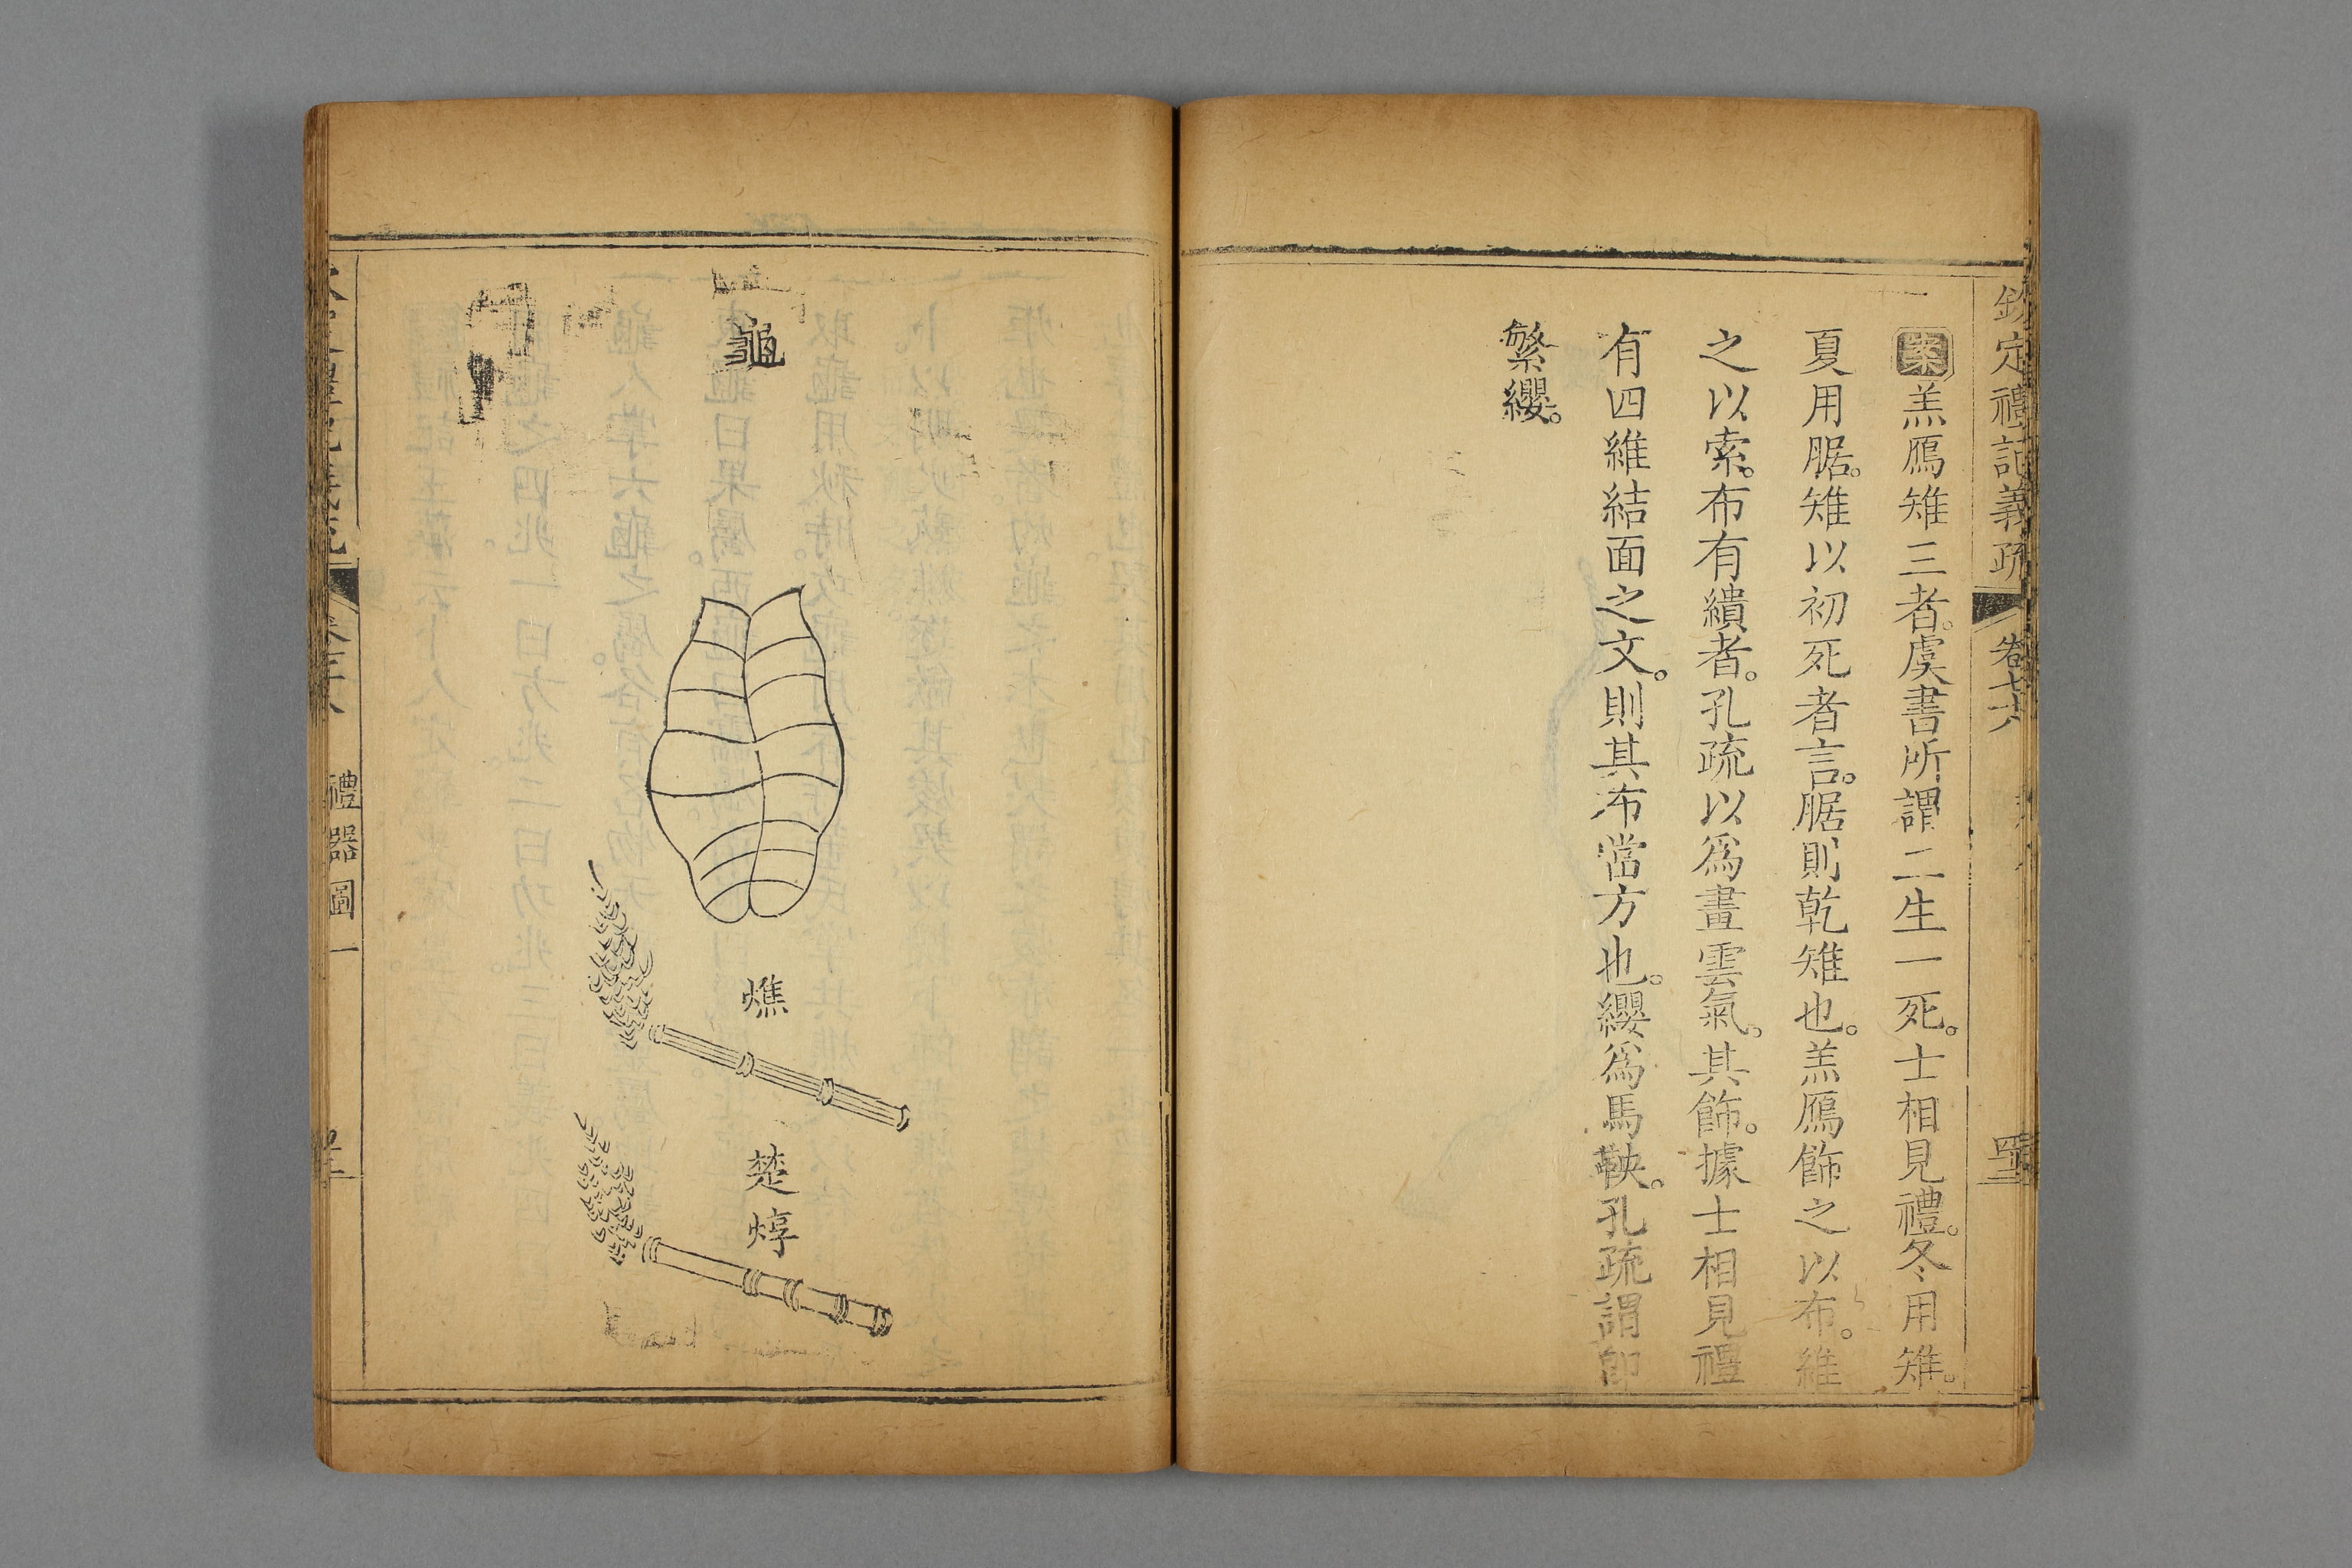 欽定禮記義疏
案羔鴈雉三者。虞書所謂二生一死。士相見禮。冬用雉。
夏用腒。雉以初死者言。腒則乾雉也。羔鴈飾之以布。維
之以索。布有繢者。孔疏以爲畫雲氣。其飾。據士相見禮
有四維結面之文。則其布當方也。纓爲馬鞅。孔疏謂卽
繁纓。
龜
燋
楚焞
禮器圖一